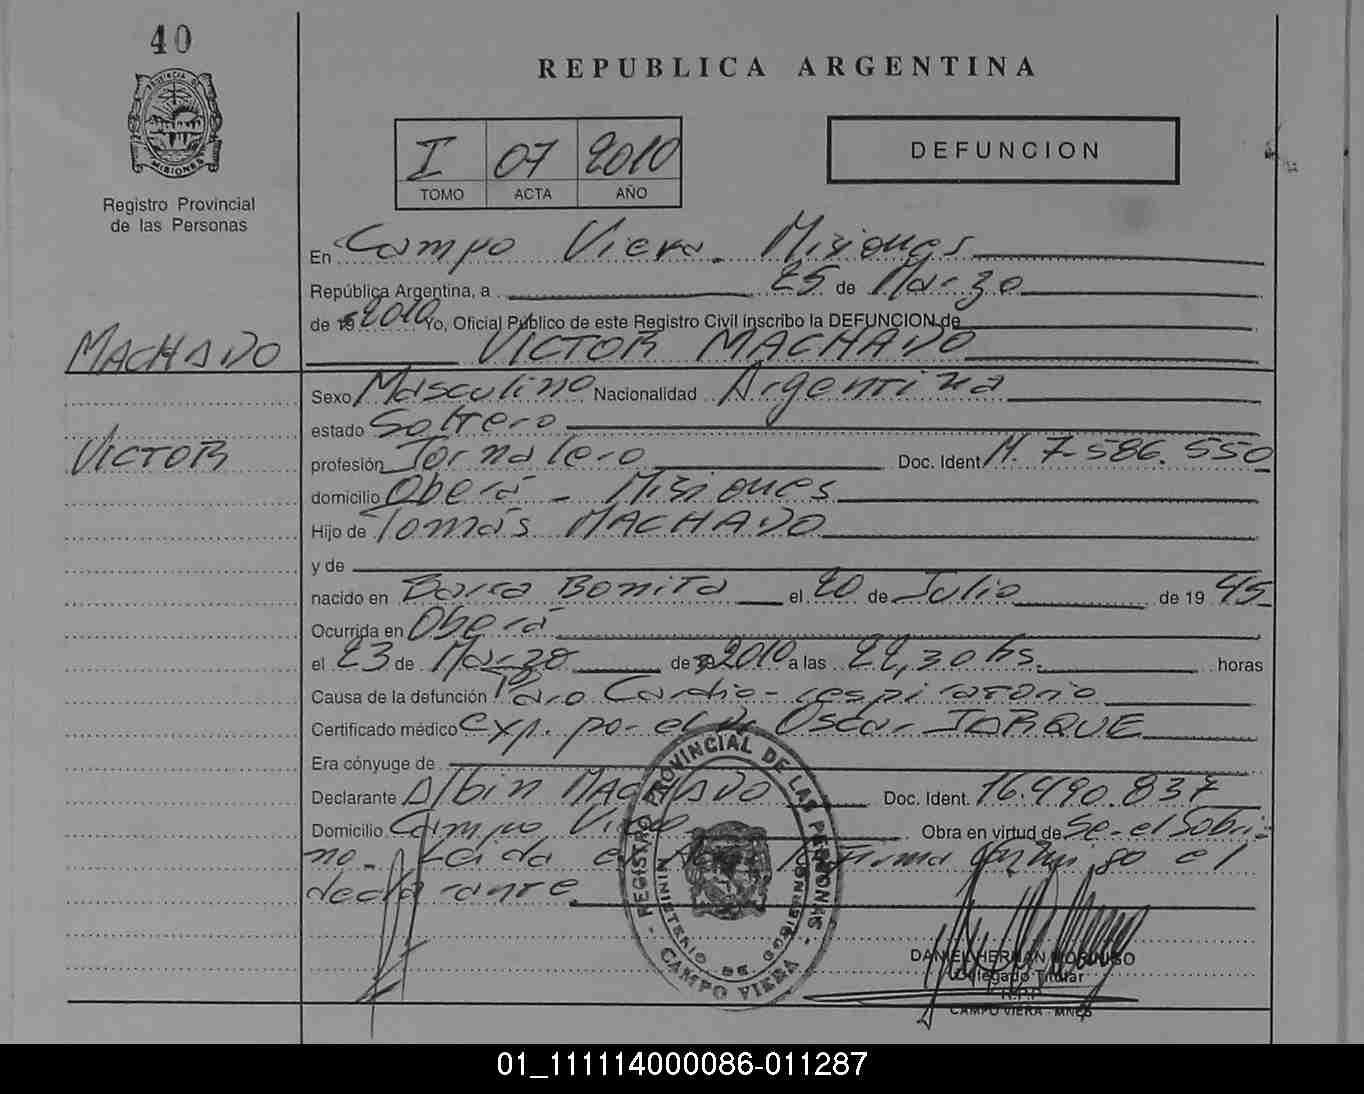 40
PROVINCIA DE
MISIONES
Registro Provincial
de las Personas
REPUBLICA ARGENTINA
I 07 2010
TOMO ACTA AÑO
DEFUNCION
En Campo Viera. Misiones
República Argentina, a 25 de Marzo
de 19 2010 Yo, Oficial Público de este Registro Civil inscribo la DEFUNCION de
MACHADO VICTOR MACHADO
Sexo Masculino Nacionalidad Argentina
estado Soltero
VICTOR profesión Jornalero Doc. Ident M. 7.586.550
domicilio Oberá - Misiones
Hijo de Tomás MACHADO
y de
nacido en Barra Bonita el 20 de Julio de 19 45
Ocurrida en Oberá
el 23 de Marzo de 19 2010 a las 22,30 hs. horas
Causa de la defunción Paro Cardio-respiratorio
Certificado médico exp. por el Dr Oscar JARQUE
Era cónyuge de
Declarante Albin MACHADO Doc. Ident. 16.490.837
Domicilio Campo Viera Obra en virtud de Se el Sobri-
no. Leida el Acta firma conmigo el
declarante
REGISTRO PROVINCIAL DE LAS PERSONAS
MINISTERIO DE GOBIERNO
CAMPO VIERA
DANIEL HERNAN
Delegado Titular
R.P.P
CAMPO VIERA - MNES
01_111114000086-011287